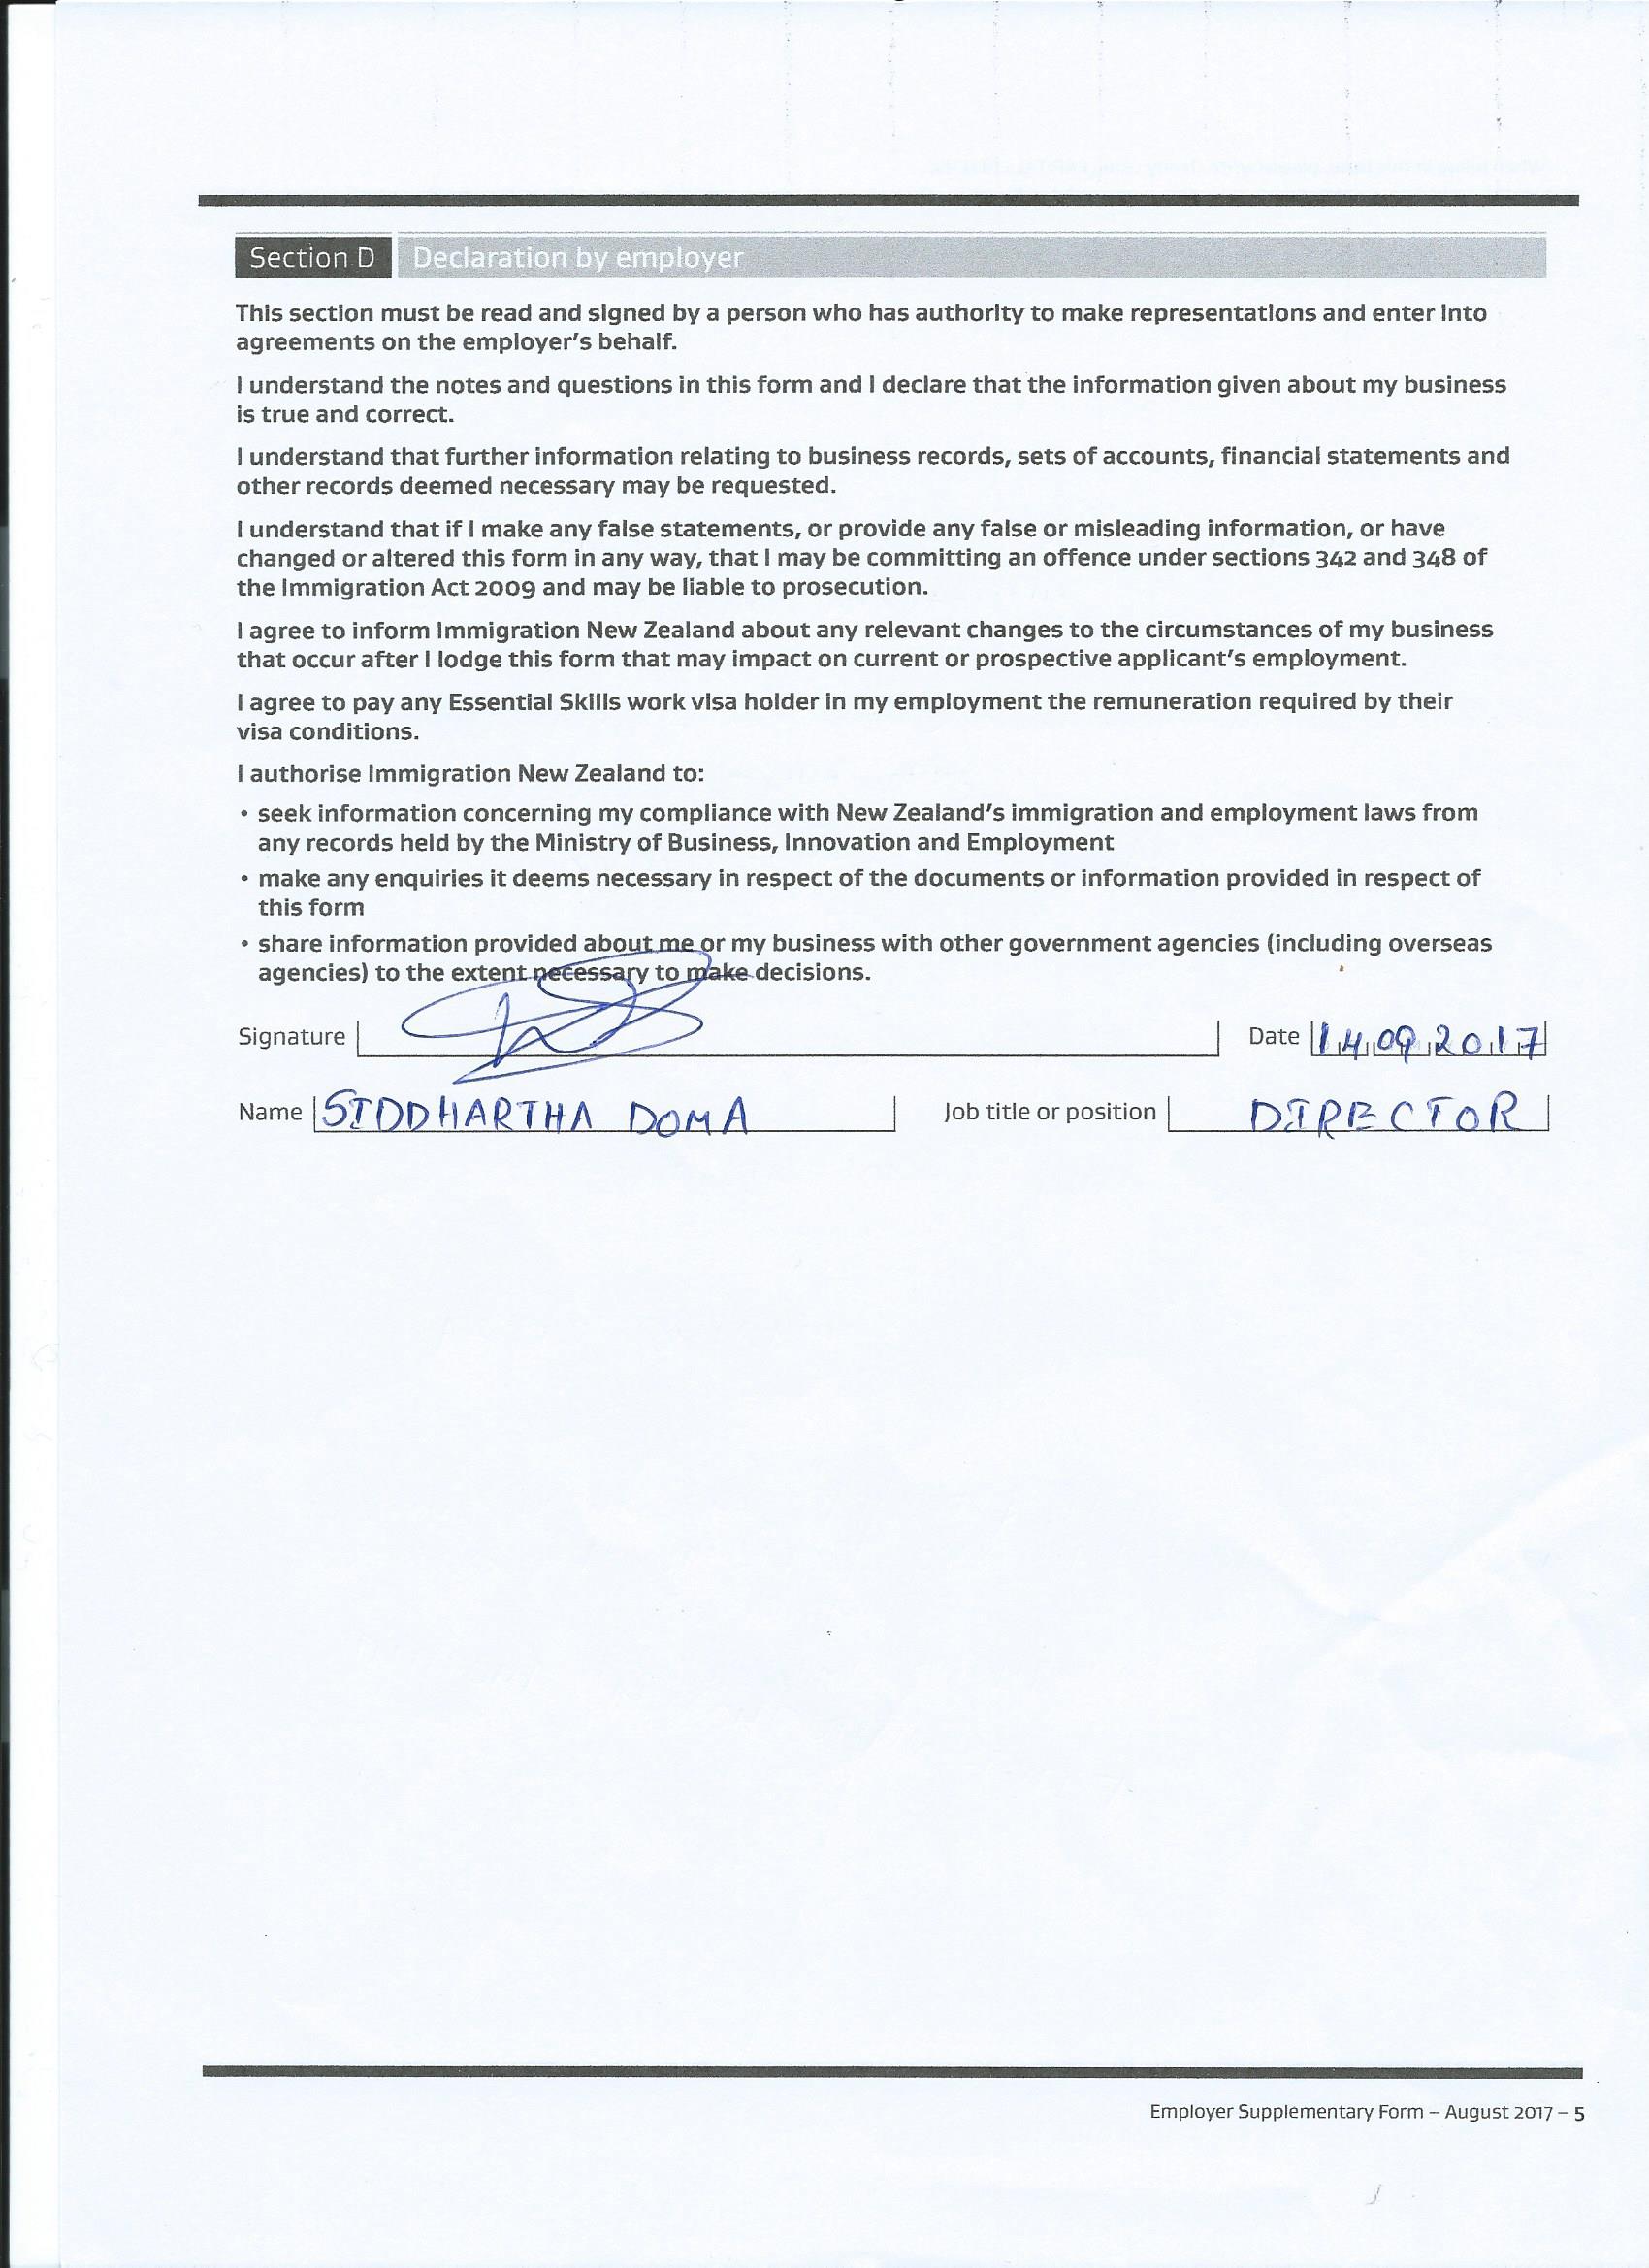 Section D Declaration by employer
This section must be read and signed by a person who has authority to make representations and enter into
agreements on the employer's behalf.
I understand the notes and questions in this form and I declare that the information given about my business
is true and correct.
I understand that further information relating to business records, sets of accounts, financial statements and
other records deemed necessary may be requested.
I understand that if I make any false statements, or provide any false or misleading information, or have
changed or altered this form in any way, that I may be committing an offence under sections 342 and 348 of
the Immigration Act 2009 and may be liable to prosecution.
I agree to inform Immigration New Zealand about any relevant changes to the circumstances of my business
that occur after I lodge this form that may impact on current or prospective applicant's employment.
I agree to pay any Essential Skills work visa holder in my employment the remuneration required by their
visa conditions.
I authorise Immigration New Zealand to:
• seek information concerning my compliance with New Zealand's immigration and employment laws from
any records held by the Ministry of Business, Innovation and Employment
• make any enquiries it deems necessary in respect of the documents or information provided in respect of
this form
• share information provided about me or my business with other government agencies (including overseas
agencies) to the extent necessary to make decisions.
Signature Date 14 09 2017
Name SIDDHARTHA DOMA Job title or position DIRECTOR
Employer Supplementary Form – August 2017 – 5